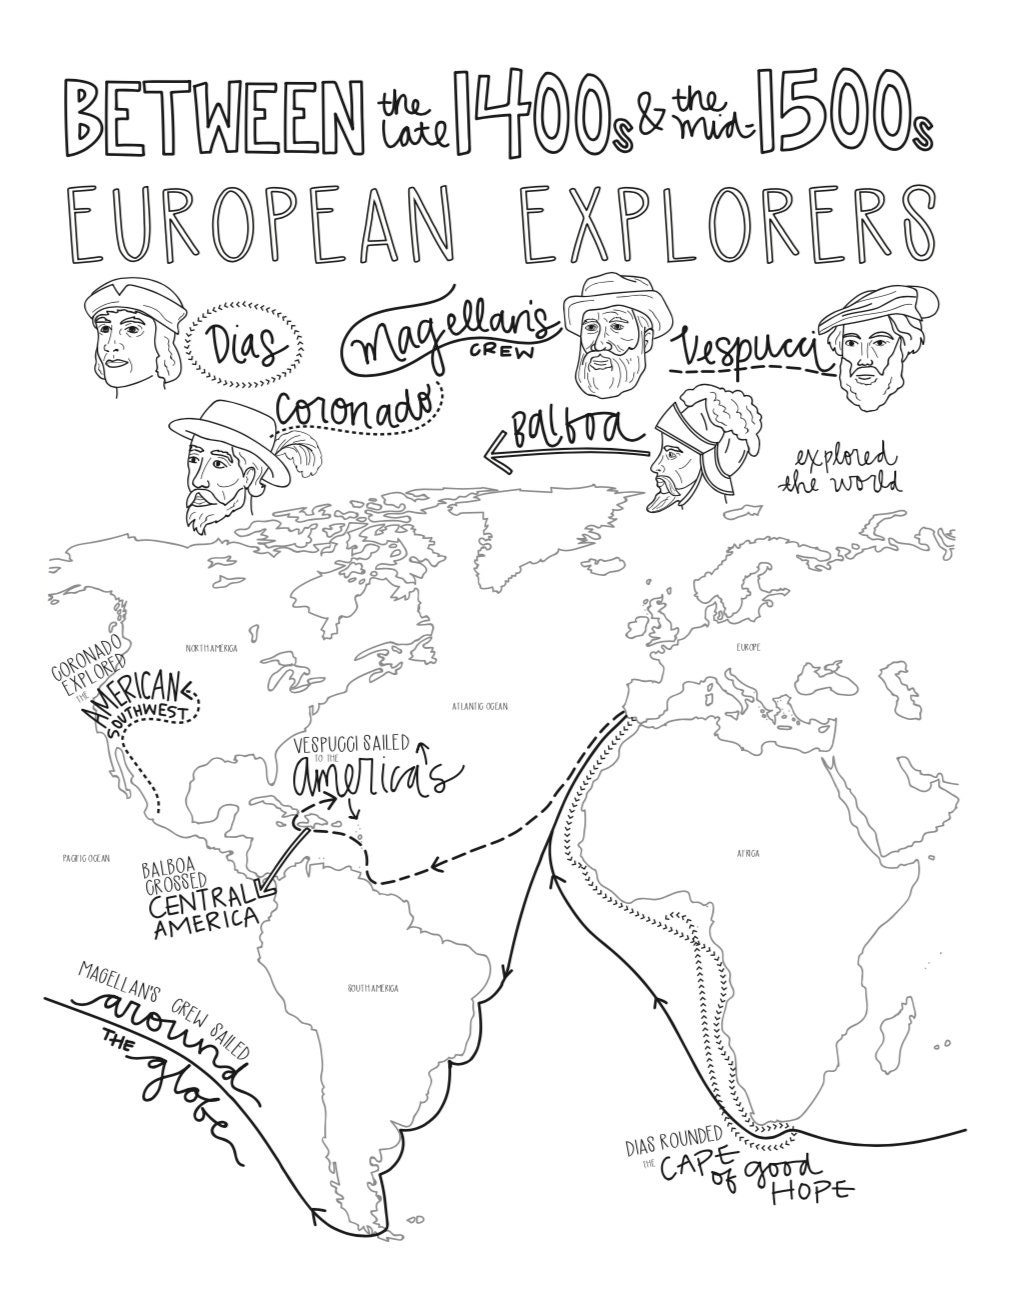 BETWEEN the late 1400s & the mid-1500s
EUROPEAN EXPLORERS
Dias
Magellan's CREW
Vespucci
Coronado
Balboa
explored the world
CORONADO
EXPLORED
THE AMERICAN
SOUTHWEST
NORTH AMERICA
EUROPE
ATLANTIC OCEAN
VESPUCCI SAILED
TO THE
america's
PACIFIC OCEAN
AFRICA
BALBOA
CROSSED
CENTRAL
AMERICA
SOUTH AMERICA
MAGELLAN'S CREW SAILED
around
THE globe
DIAS ROUNDED
THE CAPE of good
HOPE